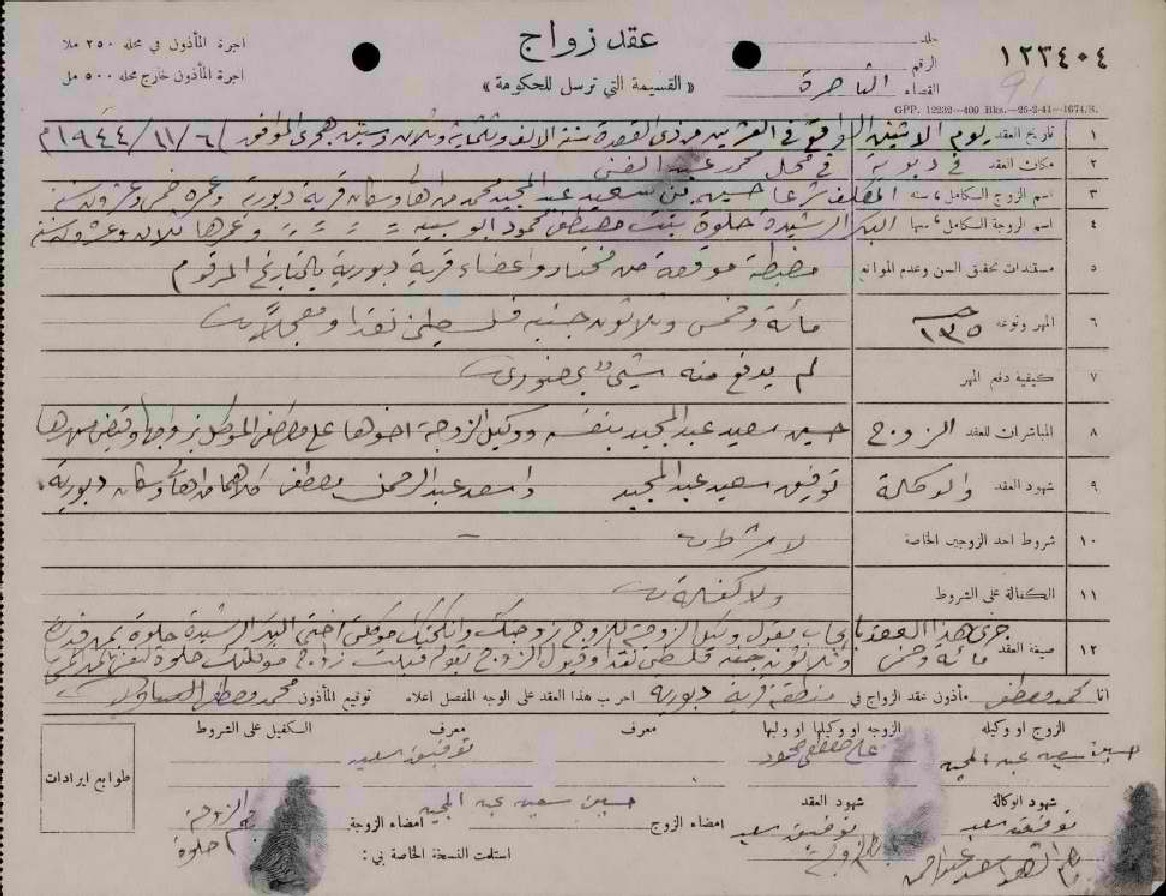 عقد زواج
« القسيمة التي ترسل للحكومة »
اجرة المأذون في محله ٢٥٠ ملا
اجرة المأذون خارج محله ٥٠٠ مل
جلد
الرقم
القضاء الناصرة
١٢٣٤٠٤
91
GPP. 12232—400 Bks.—26-2-41—1674/S.
١ تاريخ العقد يوم الاثنين الواقع في العشرين من ذي القعدة سنة الالف وثلثماية وثلاث وستين هجري الموافق ٦/١١/١٩٤٤م
٢ مكان العقد في دبورية في محل محمد عبد الغني
٣ اسم الزوج الكامل وسنه المكلف شرعا حسين بن سعيد عبد المجيد محمد من اهالي وسكان قرية دبورية وعمره خمس وعشرون سنة
٤ اسم الزوجة الكامل وسنها البكر الرشيدة حلوة بنت مصطفى محمود ابو سيه = = = = وعمرها ثلاث وعشرون سنة
٥ مستندات تحقيق السن وعدم الموانع مضبطة موقعة من مختار واعضاء قرية دبورية بالتاريخ المرقوم
٦ المهر ونوعه ١٣٥ مائة وخمس وثلاثون جنيه فلسطيني نقدا ومعجلا
٧ كيفية دفع المهر لم يدفع منه شيئ بحضوري
٨ المباشران للعقد الزوج حسين سعيد عبد المجيد بنفسه ووكيل الزوجة اخوها علي مصطفى الموكل بزواجها وقبض مهرها
٩ شهود العقد والوكالة توفيق سعيد عبد المجيد واسعد عبد الرحمن مصطفى كلاهما من اهالي وسكان دبورية
١٠ شروط احد الزوجين الخاصة لا شرط —
١١ الكفالة على الشروط ولا كفالة
١٢ صيغة العقد جرى هذا العقد بايجاب بقول وكيل الزوجة للزوج زوجتك وانكحتك موكلتي اختي البكر الرشيدة حلوة بمهر قدره
مائة وخمس وثلاثون جنيه فلسطيني نقدا وقبول الزوج بقوله قبلت زواج موكلتك حلوة لنفسي
انا محمد مصطفى مأذون عقد الزواج في منطقة قرية دبورية اجريت هذا العقد على الوجه المفصل اعلاه توقيع المأذون محمد مصطفى
الزوج او وكيله الزوجه او وكيلها او وليها معرف معرف الكفيل على الشروط
حسين سعيد عبد المجيد علي مصطفى محمود توفيق سعيد
طوابع ايرادات
شهود الوكالة شهود العقد امضاء الزوج حسين سعيد عبد المجيد امضاء الزوجة
توفيق سعيد توفيق سعيد الزوجة
حلوة
استلمت النسخة الخاصة بي :